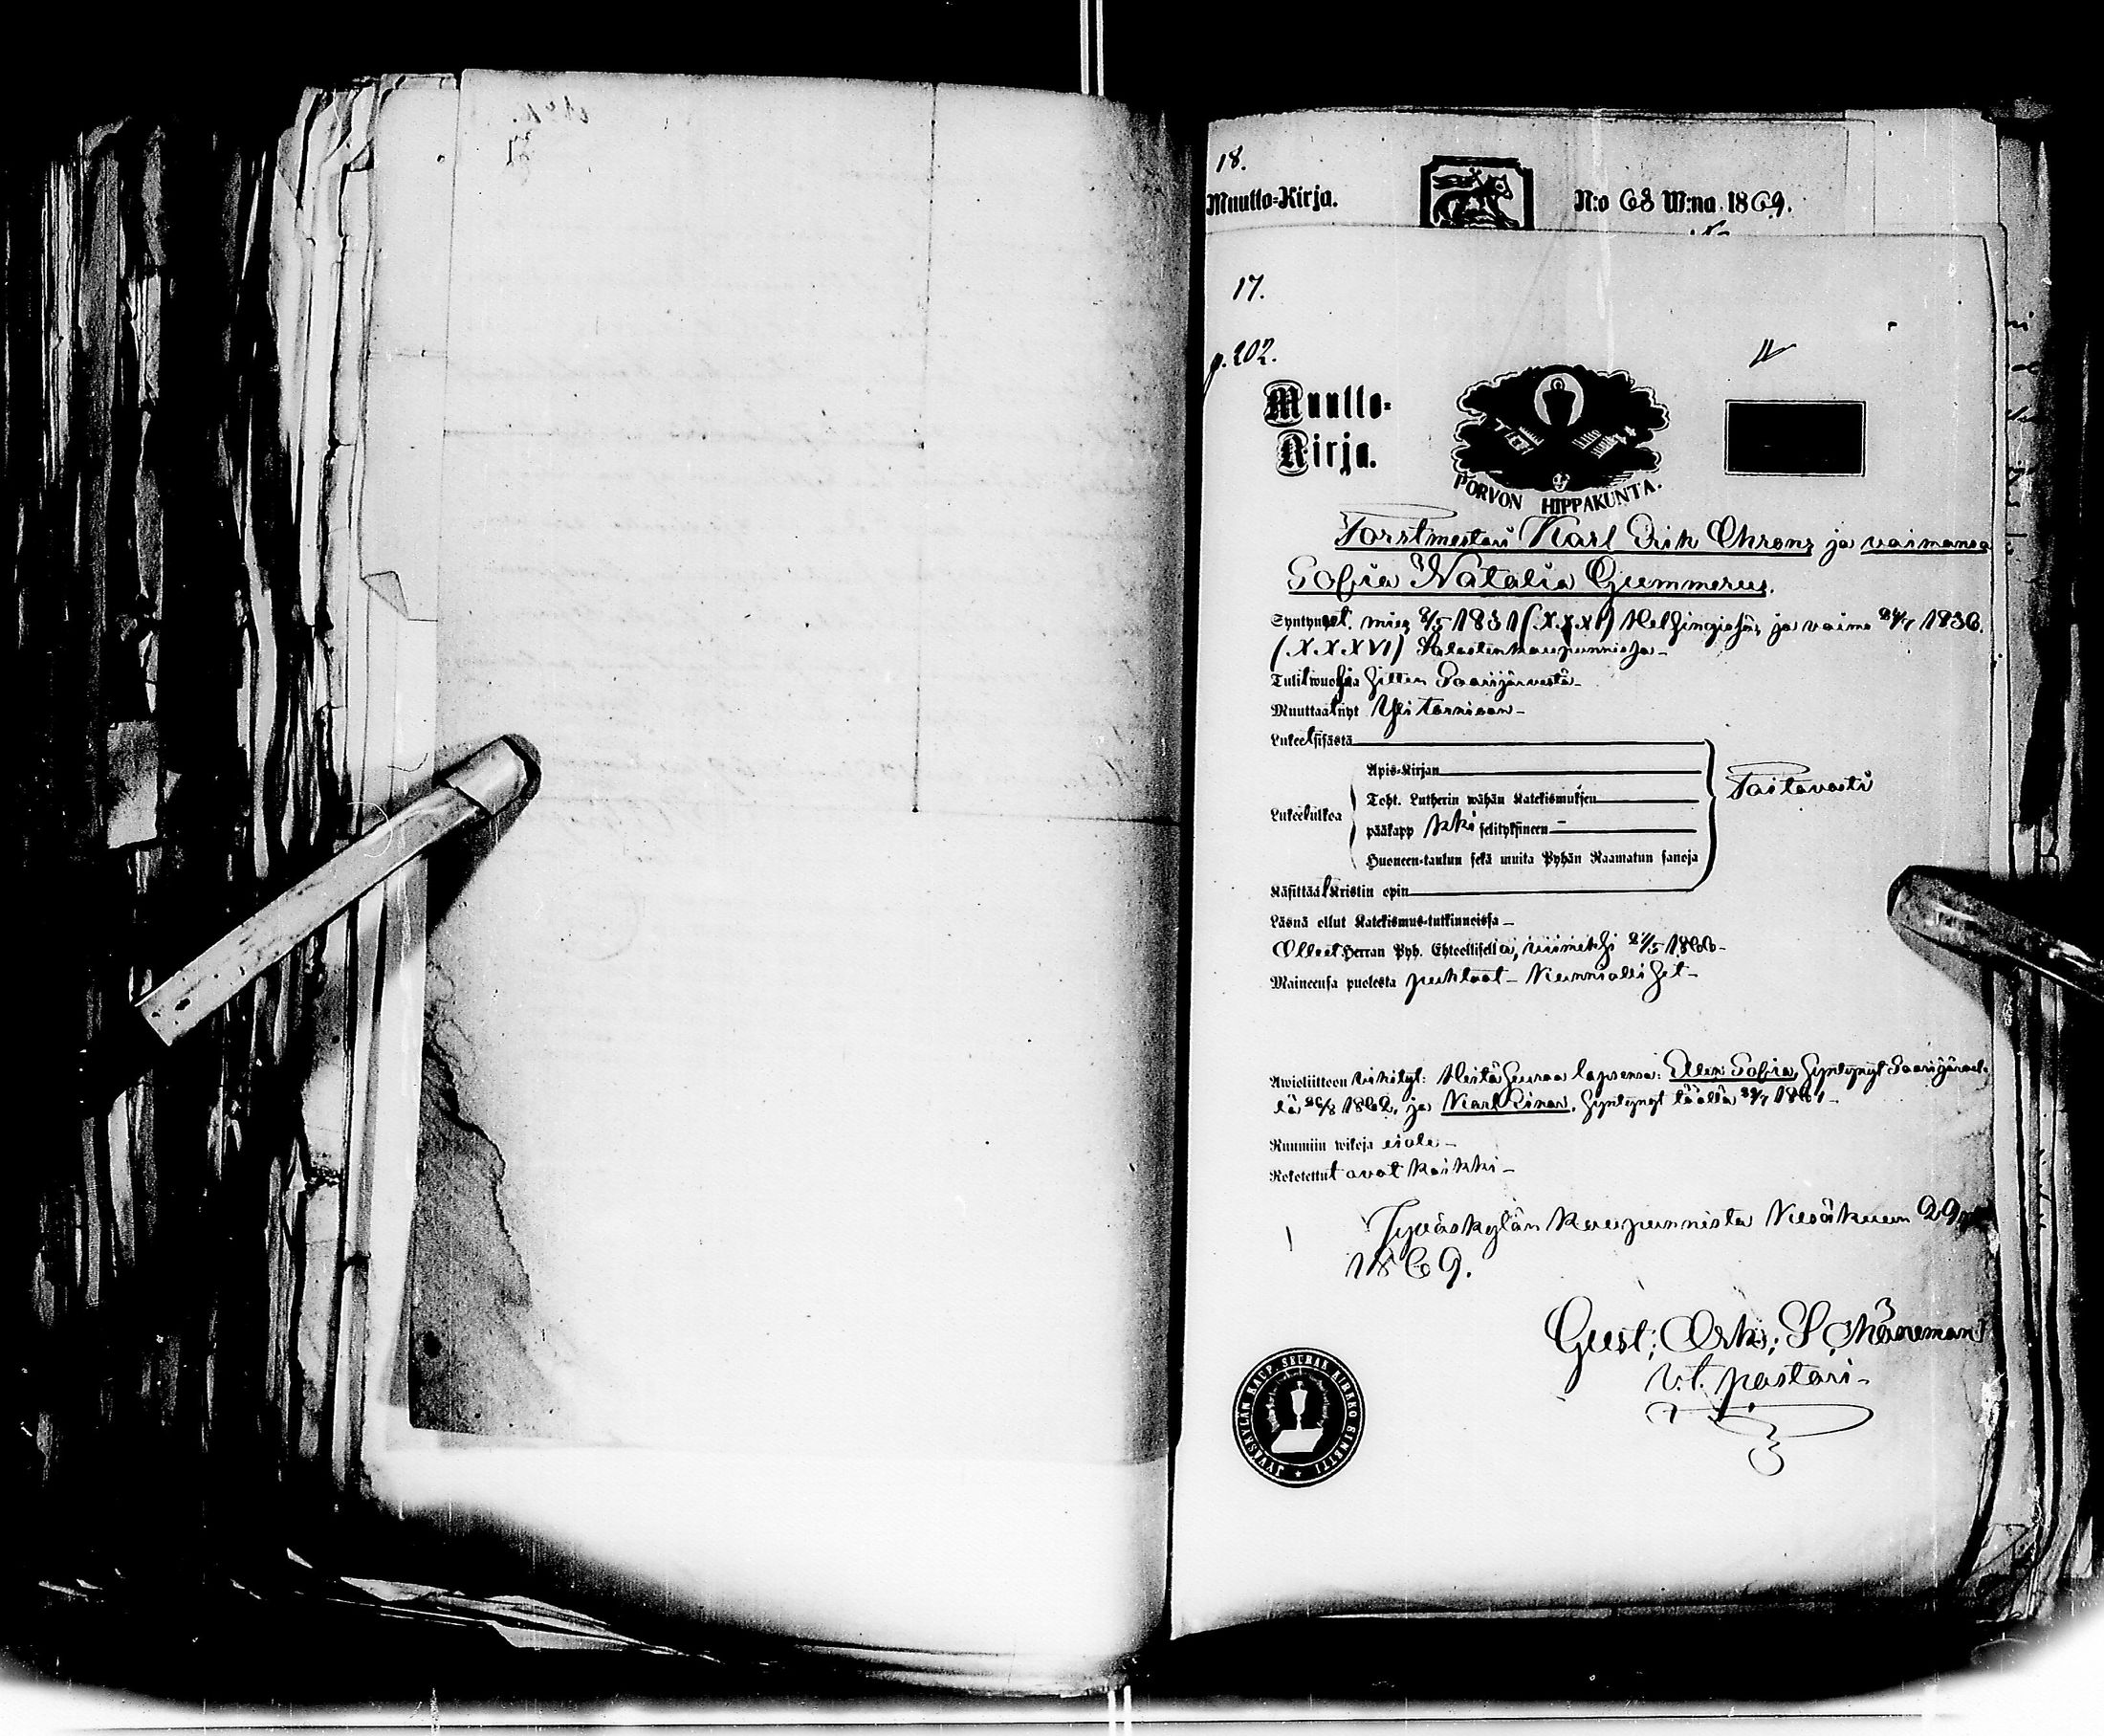 18.
Muutto-Kirja.
N:o 68 W:na 1869.
17.
p. 202.
Muutto-
Kirja.
PORVON HIPPAKUNTA.
Forstmestari Karl Erik Ehrons ja vaimonsa
Sofia Natalia Gummerus.
Syntynet. mies 2/5 1831 (XXXI) Helsingissä, ja vaimo 24/7 1836.
(XXXVI) Kaupunnissa-
Tulit wuosia sitten Saarijärveltä-
Muuttaat nyt Yli Tornioon-
Lukeet sisästä
Apis-Kirjan
Toht. Lutherin wähän Katekismuksen
Lukeet ulkoa
pääkapp kki selityksineen -
Taitavasti
Huoneen-taulun sekä muita Pyhän Raamatun sanoja
Käsittäät Kristin opin
Läsnä ollut Katekismus-tutkinnoissa -
Olleet Herran Pyh. Ehtoollisella, viimeksi 27/5 1866-
Maineensa puolesta puhtaat - Kunnialliset -
Awioliittoon vihityt: Heitä seuraa lapsensa: Ellen Sofia, Syntynyt Saarijärvel-
lä 26/8 1862, ja Karl Einar, Syntynyt täällä 1861 -
Ruumiin wikoja eiole -
Rokotettut ovat kaikki -
Jyväskylän Kaupunnista Kesäkuun 29
1869.
Gust; Ork;
v.t. pastori-
JYVÄSKYLÄN KAUP. SEURAK. KIRKKO SINETTI